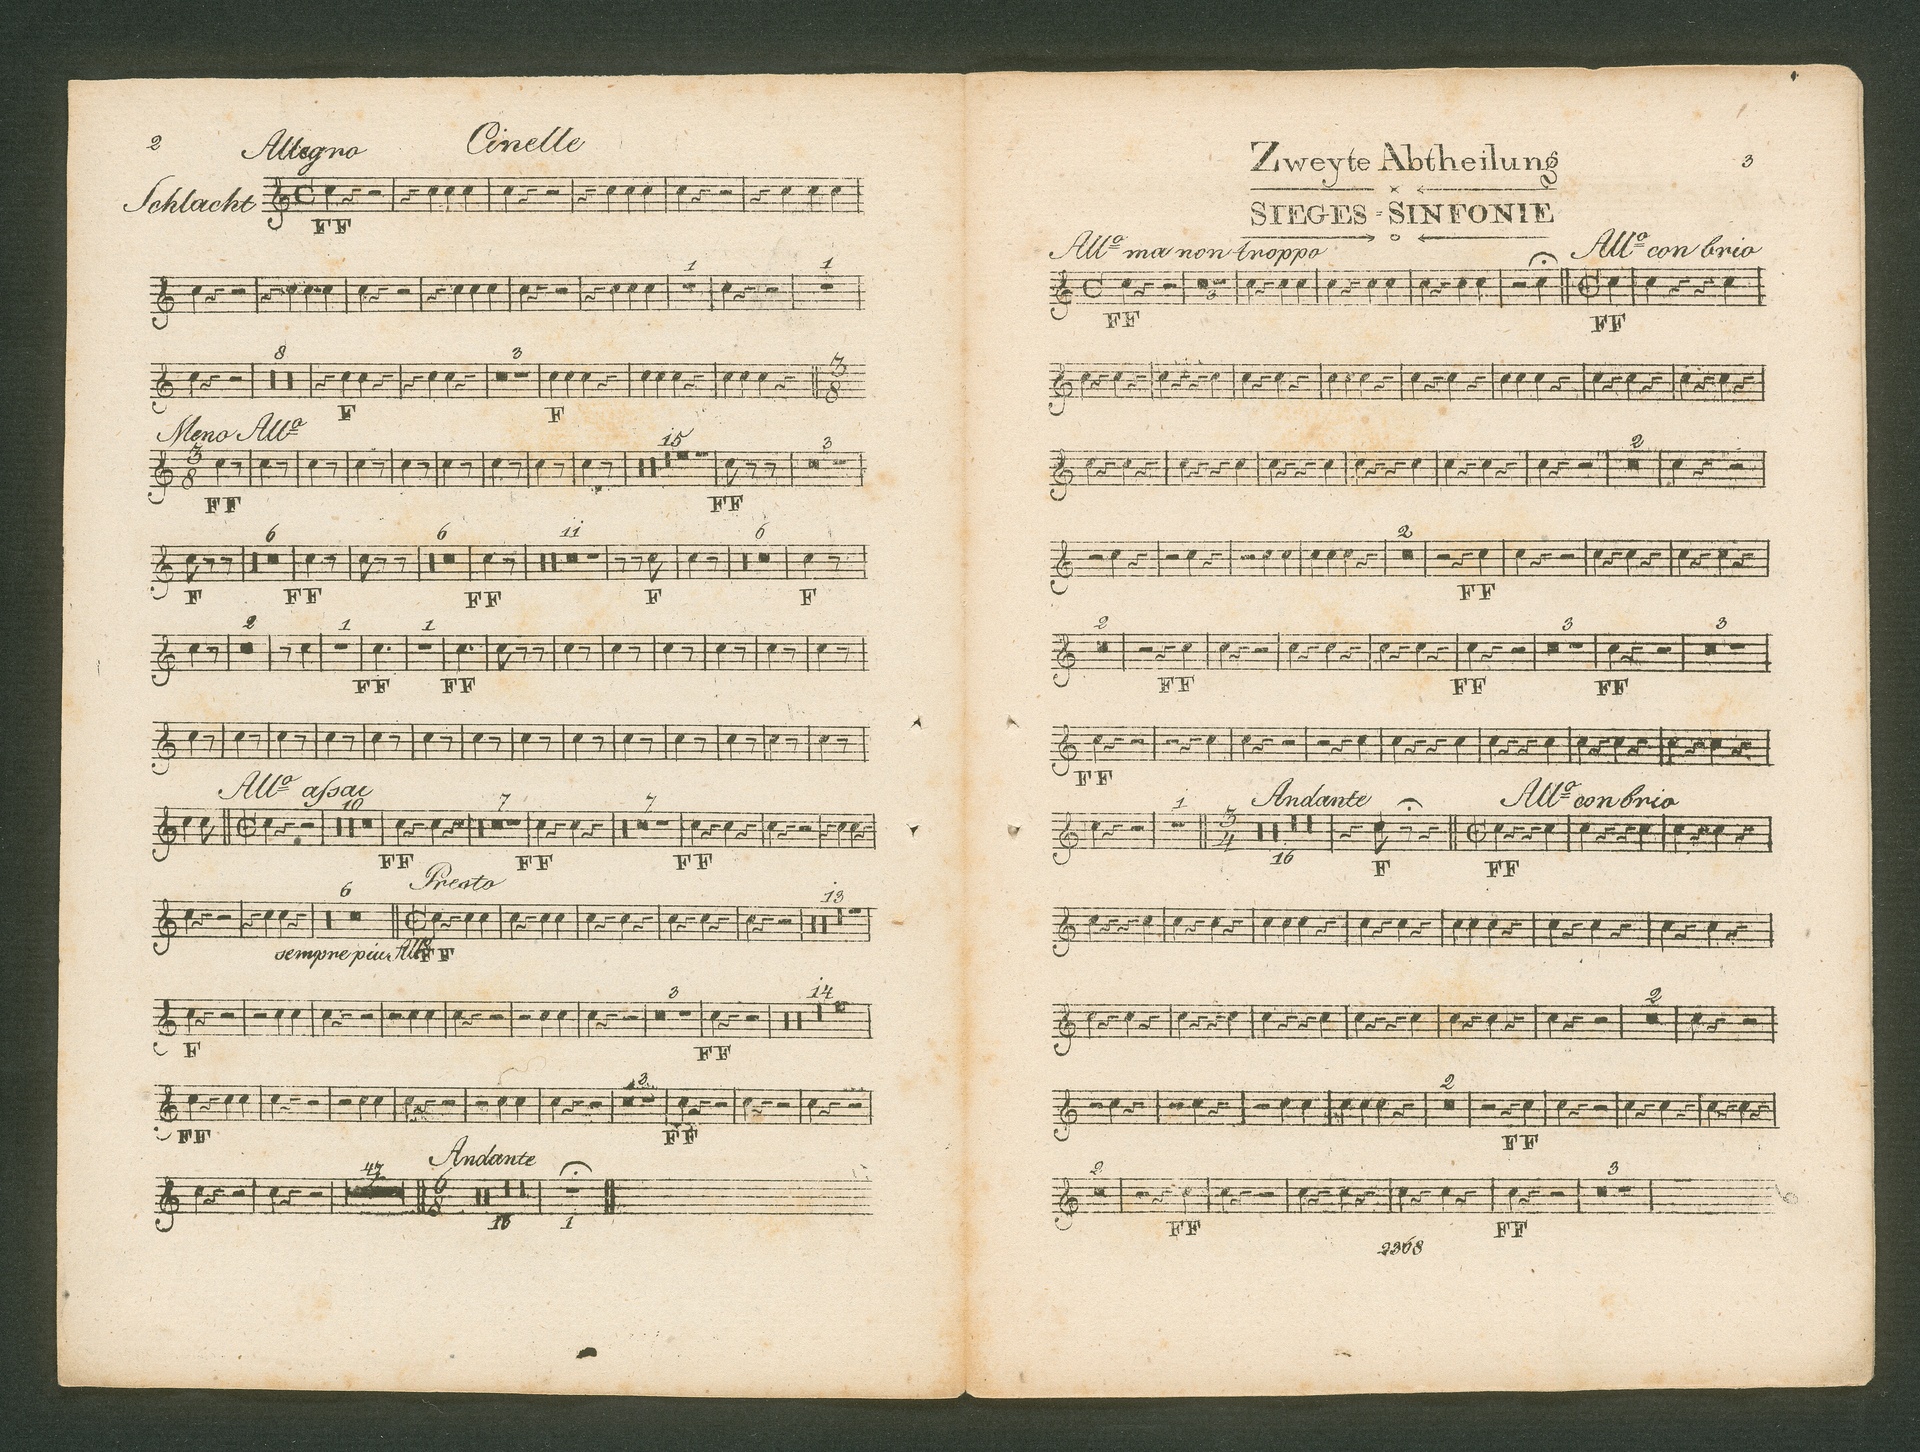 2 Allegro Cinelle
Schlacht
FF
1 1
8 3 3 8
F F
Meno All.o
3 8 15 3
FF FF
6 6 11 6
F FF FF F F
2 1 1
FF FF
All.o assai
10 7 7
FF FF FF
6 Presto 13
sempre piu All.o FF
3 14
F FF
3
FF FF
47 Andante
6 8
16 1
Zweyte Abtheilung 3
SIEGES-SINFONIE
All.o ma non troppo All.o con brio
3
FF FF
2
2
FF
2 3 3
FF FF FF
FF
1 Andante All.o con brio
3 4
16 F FF
2
2
FF
2 3
FF FF
2368